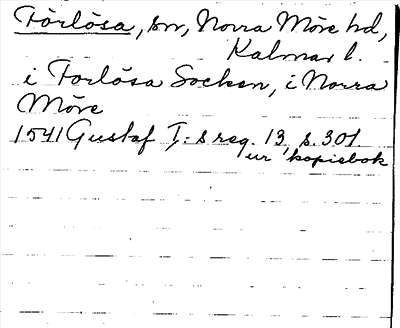 Förlösa, sn, Norra Möre hd,
Kalmar l.
i Forlösa Socken, i Norra
Möre
1541 Gustaf I:s reg. 13, s. 301
ur kopiebok